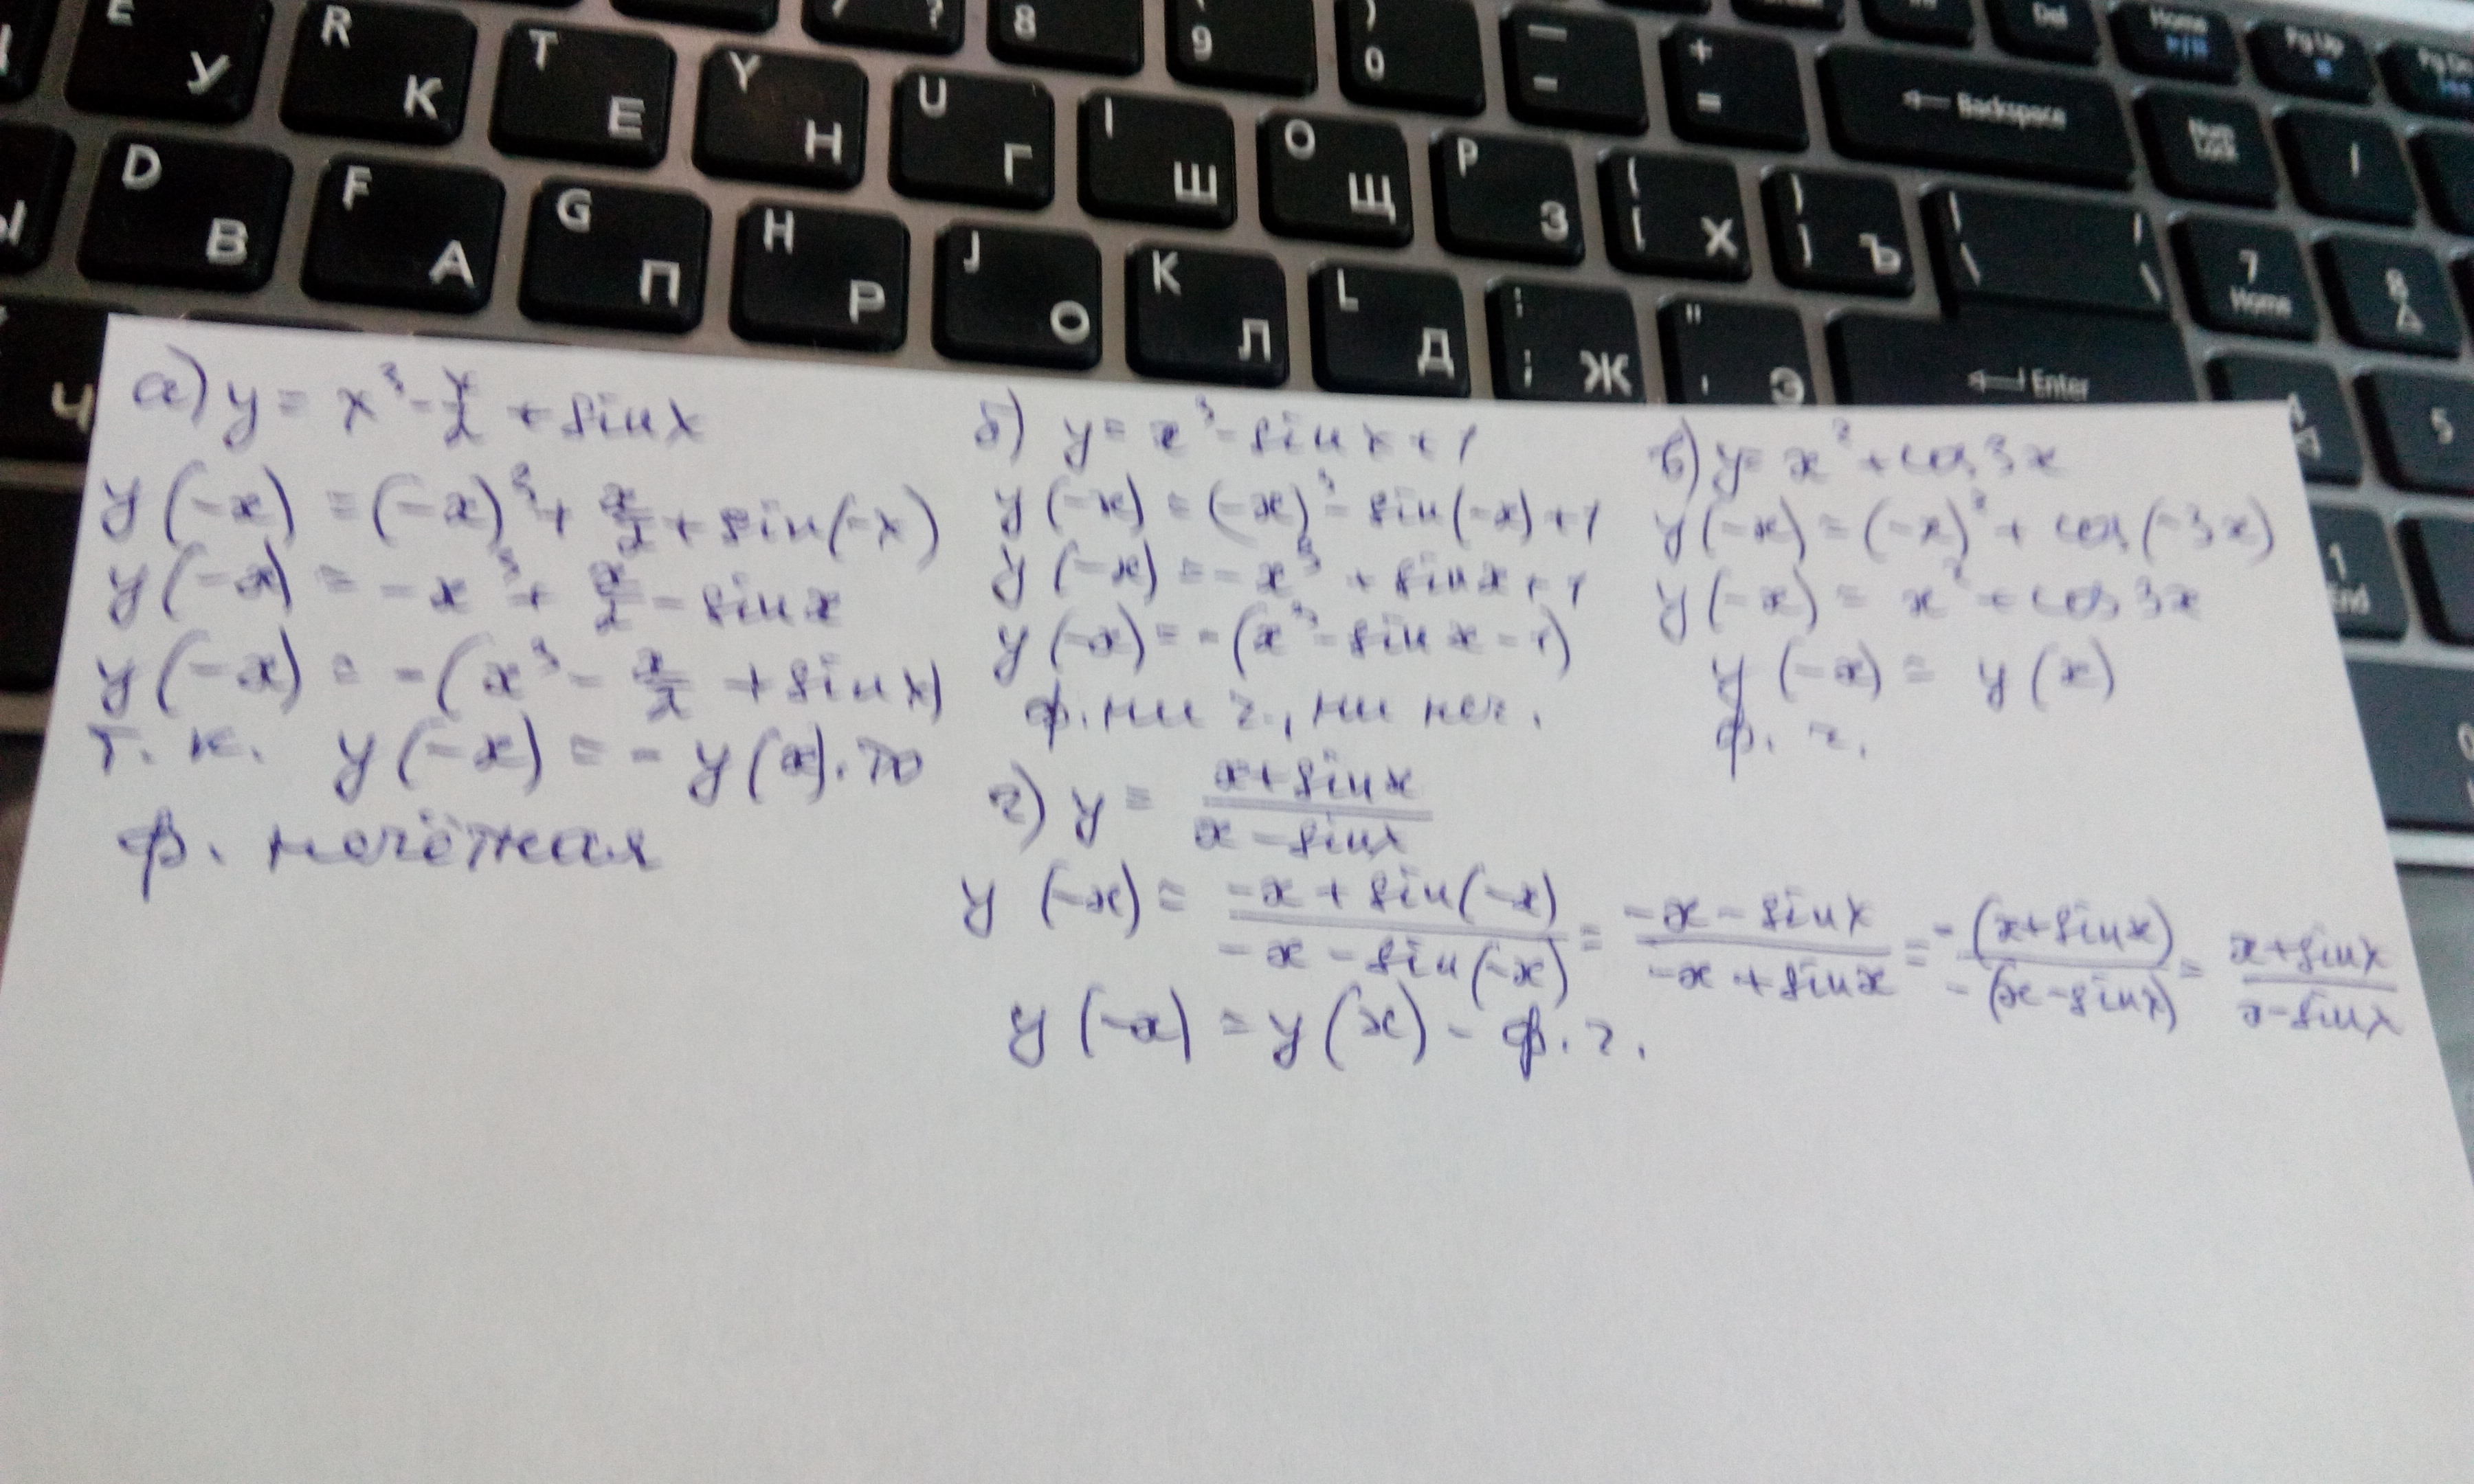 E У R К T Е Y Н U Г I Ш O Щ P З { [ Х } ] Ъ | \ / \
? 8 9 ) 0 — - + = Backspace Del Home Pg Up Num Lock /
Ы D В F А G П H Р J О K Л L Д : ; Ж " ' Э Enter 7 Home 8
Ч 4 5 1 End 0
а) y = x³ - x/2 + sin x
y(-x) = (-x)³ + x/2 + sin(-x)
y(-x) = -x³ + x/2 - sin x
y(-x) = -(x³ - x/2 + sin x)
т. к. y(-x) = - y(x). то
ф. нечётная
б) y = x³ - sin x + 1
y(-x) = (-x)³ - sin(-x) + 1
y(-x) = -x³ + sin x + 1
y(-x) = -(x³ - sin x - 1)
ф. ни ч., ни неч.
в) y = x² + cos 3x
y(-x) = (-x)² + cos(-3x)
y(-x) = x² + cos 3x
y(-x) = y(x)
ф. ч.
г) y = (x + sin x)/(x - sin x)
y(-x) = (-x + sin(-x))/(-x - sin(-x)) = (-x - sin x)/(-x + sin x) = -(x + sin x)/-(x - sin x) = (x + sin x)/(x - sin x)
y(-x) = y(x) - ф. ч.